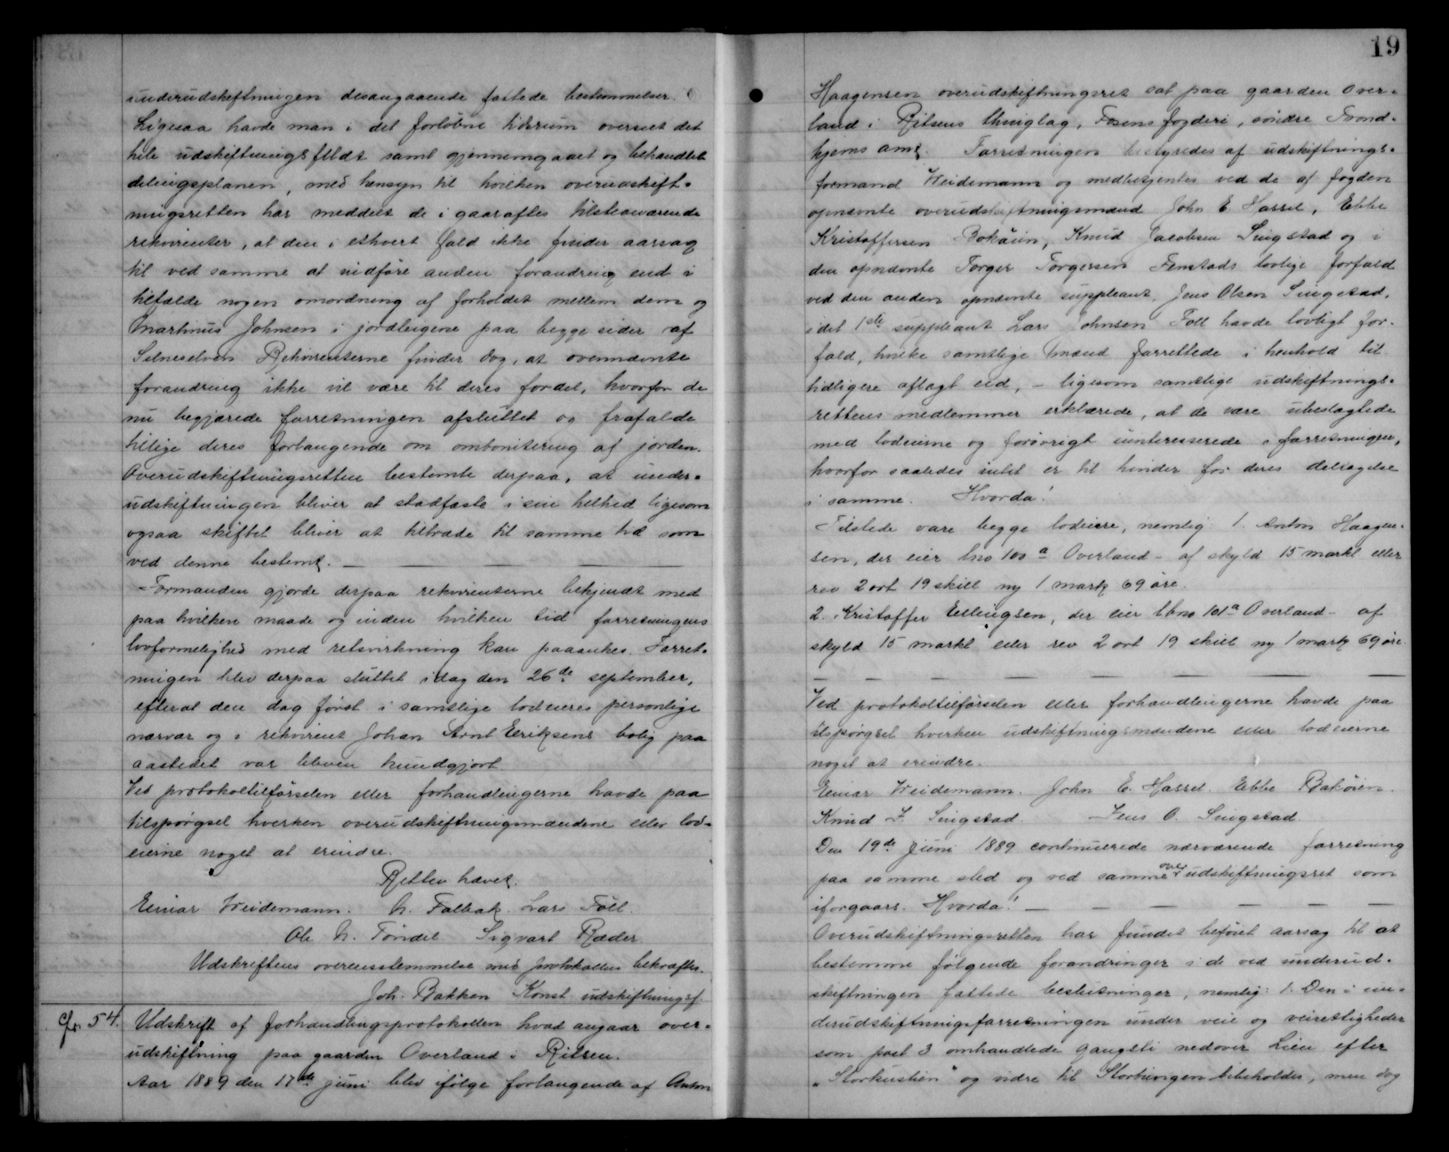 underudskiftningen desangaaende fattede bestemmelser.
Ligesaa havde man i det forløbne tidsrum overseet det
hele udskiftningsfeldt samt gjennemgaaet og behandlet
delingsplanen, med hensyn til hvilken overudskift-
ningsretten har meddelt de i gaaraftes tilstedeværende
rekvirenter, at den i ethvert fald ikke finder aarsag
til ved samme at indføre anden forandring end i
tilfælde nogen omordning af forholdet mellem dem og
Marthinus Johnsen i jordteigene paa begge sider af
Selneselven Rekvirenterne finder dog, at ovennævnte
forandring ikke vil være til deres fordel, hvorfor de
nu begjærede forretningen afsluttet og frafaldt
tillige deres forlangende om ombonitering af jorden.
Overudskiftningsretten bestemte derpaa, at under-
udskiftningen bliver at stadfæste i sin helhed ligesom
ogsaa skiftet bliver at tiltræde til samme tid som
ved denne bestemt.
Formanden gjorde derpaa rekvirenterne bekjendt med
paa hvilken maade og inden hvilken tid forretningens
lovformelighed med retsvirkning kan paaankes. Forret-
ningen blev derpaa sluttet idag den 26de september,
efterat den dag først i samtlige lodeieres personlige
nærvær og i rekvirent Johan Arnt Eriksens bolig paa
aastedet var bleven kundgjort
Ved protokoltilførselen eller forhandlingerne havde paa
tilspørgsel hverken overudskiftningsmændene eller lod-
eierne noget at erindre.
Retten hævet.
Einar Weidemann. N. Falbak. Lars Føll.
Ole N. Tøndel Sigvart Ræder
Udskriftens overensstemmelse med protokollen bekræftes.
Joh. Bakken Konst udskiftningsf.
Cfr. 54. Udskrift af forhandlingsprotokollen hvad angaar over-
udskiftning paa gaarden Overland i Ritsen.
Aar 1889 den 17de juni blev ifølge forlangende af Anton
19
Haagensen overudskiftningsret sat paa gaarden Over-
land i Ritsens thinglag, Fosens fogderi, søndre Trond-
hjems amt. Forretningen bestyredes af udskiftnings-
formand Weidemann og medbetjentes ved de af fogden
opnævnte overudskiftningsmænd John E. Hassel, Ebbe
Kristoffersen Bakøien, Knud Jacobsen Singstad og i
den opnævnte Torger Torgersen Fenstads lovlige forfald
ved den anden opnævnte suppleant, Jens Olsen Singstad,
idet 1ste suppleant Lars Johnsen Føll havde lovligt for-
fald, hvilke samtlige mænd forrettede i henhold til
tidligere aflagt eed, - ligesom samtlige udskiftnings-
rettens medlemmer erklærede, at de vare ubeslægtede
med lodeierne og forøvrigt uinteresserede i forretningen,
hvorfor saaledes intet er til hinder for deres deltagelse
i samme. Hvorda!
Tilstede vare begge lodeiere, nemlig: 1. Anton Haagen-
sen, der eier bno 100a Overland - af skyld 15 markl eller
rev 2 ort 19 skill ny 1 mark 69 øre.
2. Kristoffer Ellingsen, der eier lbno 101a Overland - af
skyld 15 markl eller rev 2 ort 19 skill ny 1 mark 69 øre.
Ved protokoltilførselen eller forhandlingerne havde paa
tilspørgsel hverken udskiftningsmændene eller lodeierne
noget at erindre.
Einar Weidemann. John E. Hassel. Ebbe Bakøien.
Knud J. Singstad. Jens O. Singstad
Den 19de juni 1889 continuerede nærværende forretning
paa samme sted og ved samme overudskiftningsret som
iforgaars. Hvorda!
Overudskiftningsretten har fundet beføiet aarsag til at
bestemme følgende forandringer i de ved underud-
skiftningen fattede beslutninger, nemlig: 1. Den i un-
derudskiftningsforretningen under veie og veirettigheder
som post 3 omhandlede gangsti nedover Lien efter
"Storkustien" og videre til Storhingen bibeholdes, men dog